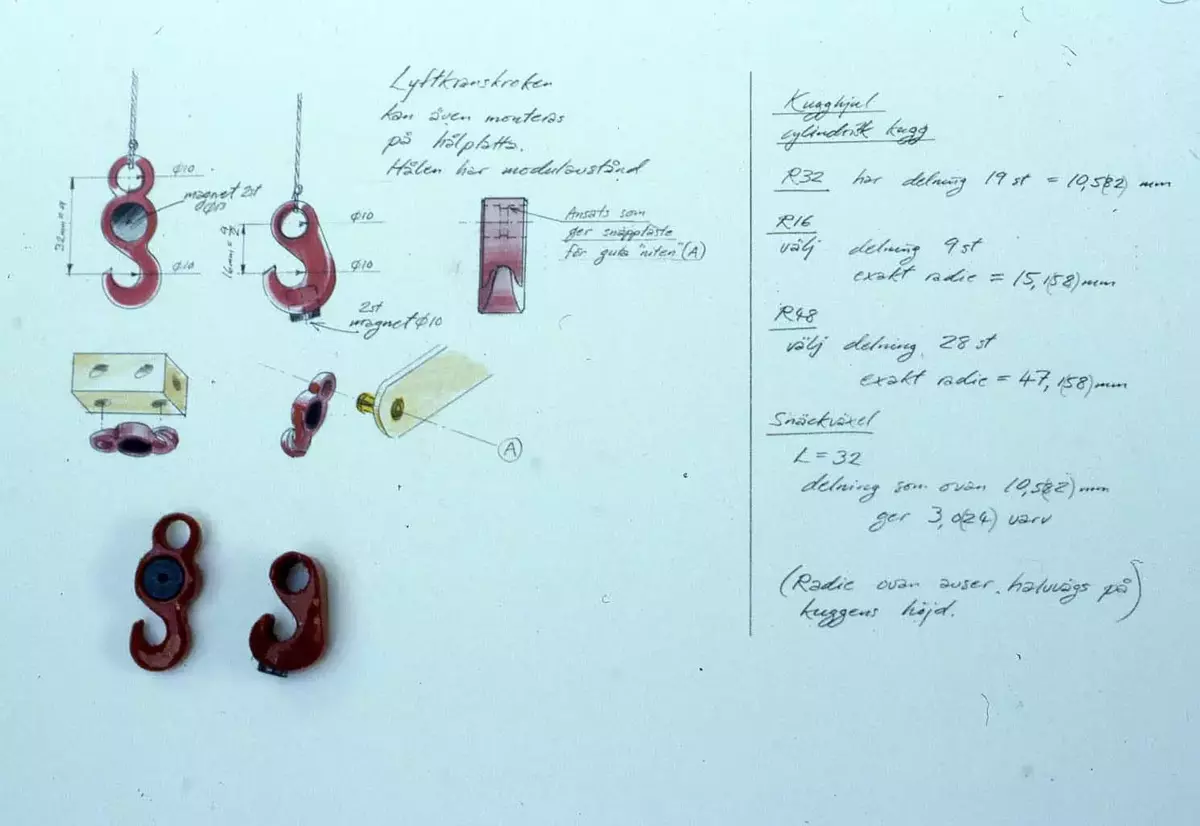 Lyftkranskroken
kan även monteras
på hålplatta.
Hålen har modulavstånd
Φ10
magnet 2st
32mm =
Φ10
Φ10
16mm =
Φ10
2st
magnet Φ10
Ansats som
ger snäpplåste
för gula "niten" (A)
A
Kugghjul
cylindrisk kugg
R32 har delning 19 st = 10,5(82) mm
R16
välj delning 9 st
exakt radie = 15,1(58) mm
R48
välj delning 28 st
exakt radie = 47,1(58) mm
Snäckväxel
L = 32
delning som ovan 10,5(82) mm
ger 3,0(24) varv
(Radie ovan avser halvvägs på
kuggens höjd.)